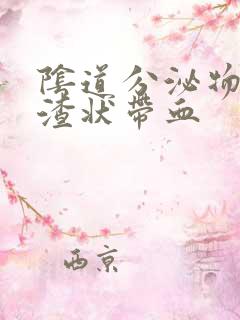 陰道分泌物
渣狀帶血
西京